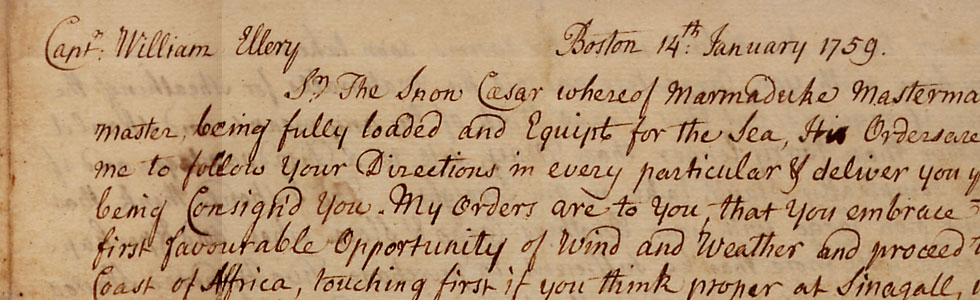 Capt.ⁿ William Ellery Boston 14.th January 1759.
S.ʳ The Snow Cæsar whereof Marmaduke Masterma
master, being fully loaded and Equipt for the Sea, His Orders are
me to follow Your Directions in every particular & deliver you y
being Consign'd You. My Orders are to You, that You embrace
first favourable Opportunity of Wind and Weather and proceed t
Coast of Africa, touching first if you think proper at Sinagall,